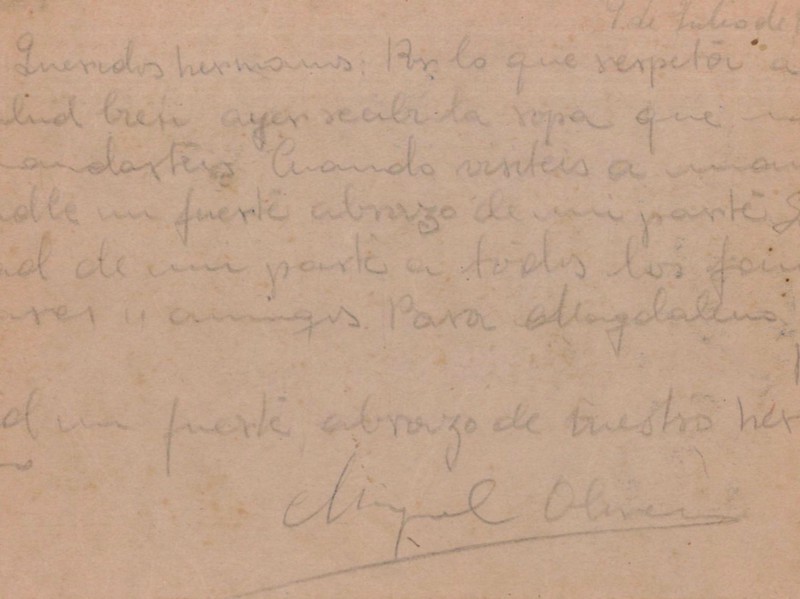 de Julio de
Queridos hermanos: Por lo que respeta a
alud bien ayer recibi la ropa que
andasteis Cuando visiteis a
adle un fuerte abrazo de mi parte
ad de mi parte a todos los fam
ares y amigos. Para Magdalena
d un fuerte abrazo de vuestro her
Miguel Oliver